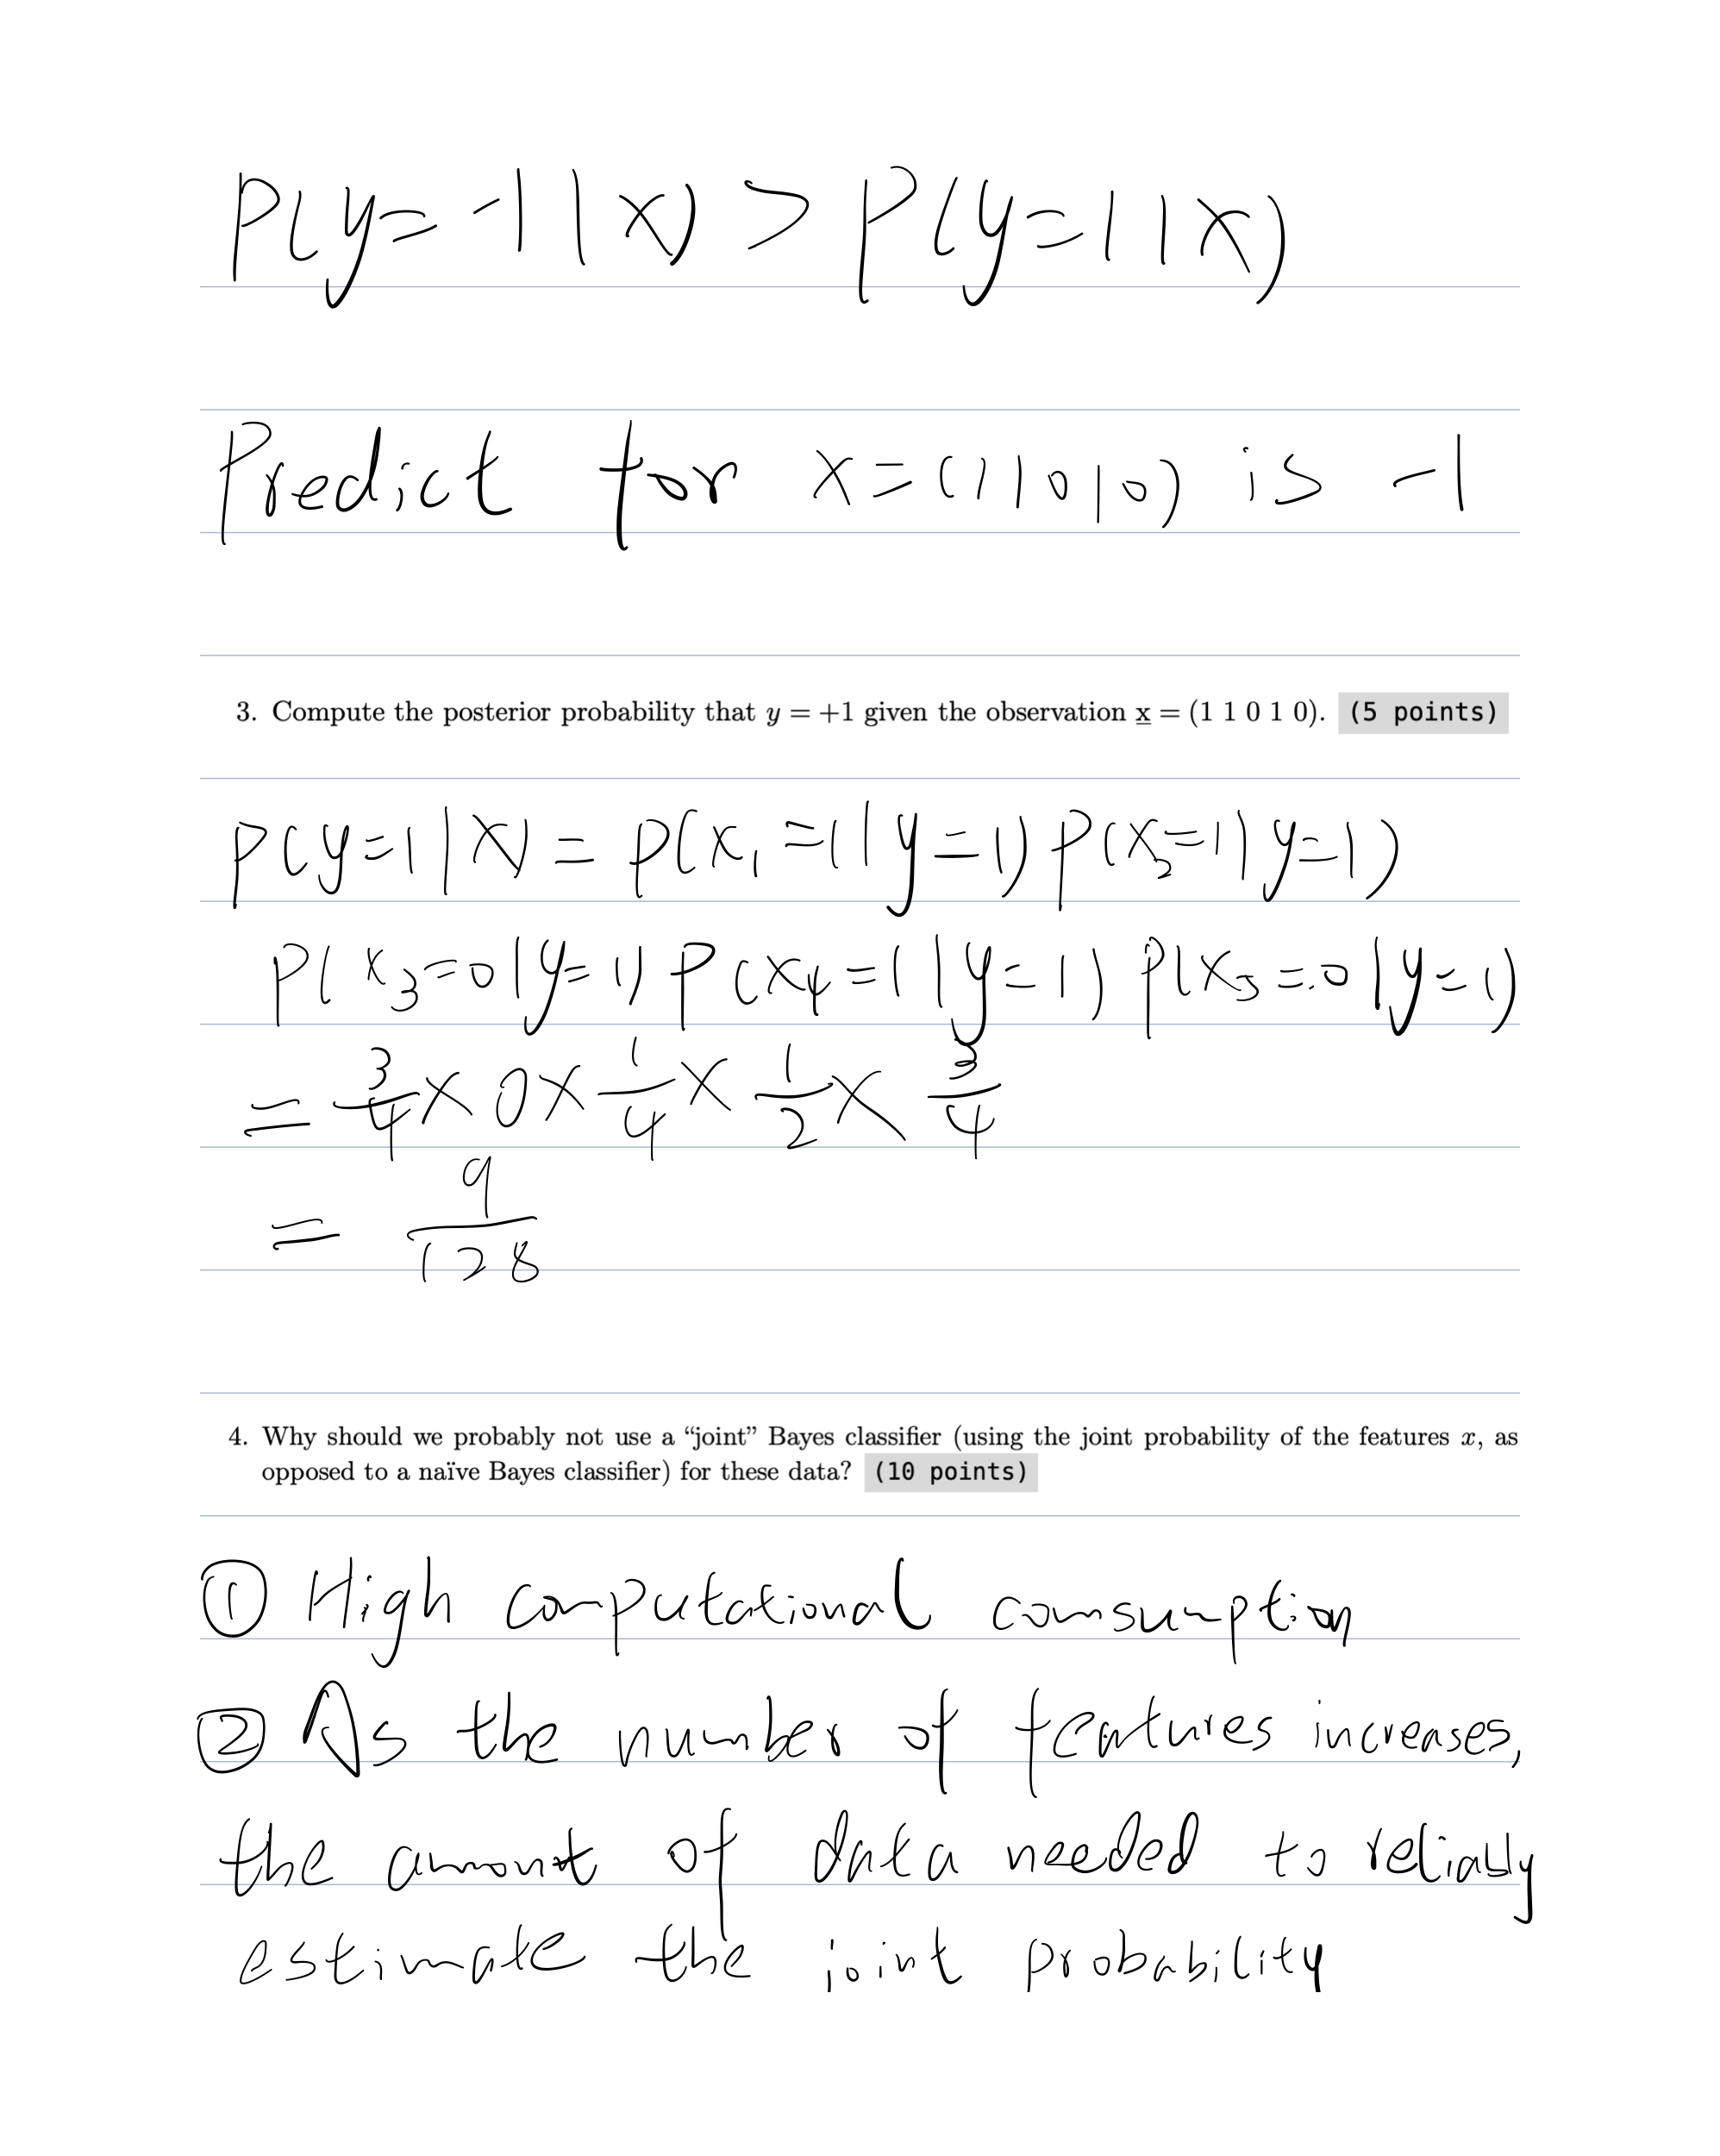 P(y=-1|x) > P(y=1|x)
Predict for x=(11010) is -1
3. Compute the posterior probability that y = +1 given the observation x = (1 1 0 1 0). (5 points)
P(y=1|x) = P(x₁=1|y=1) P(x₂=1|y=1)
P(x₃=0|y=1) P(x₄=1|y=1) P(x₅=0|y=1)
= 3/4 × 0 × 1/4 × 1/2 × 3/4
= 9/128
4. Why should we probably not use a “joint” Bayes classifier (using the joint probability of the features x, as
opposed to a naïve Bayes classifier) for these data? (10 points)
① High computational consumption
② As the number of features increases,
the amount of data needed to reliably
estimate the joint probability